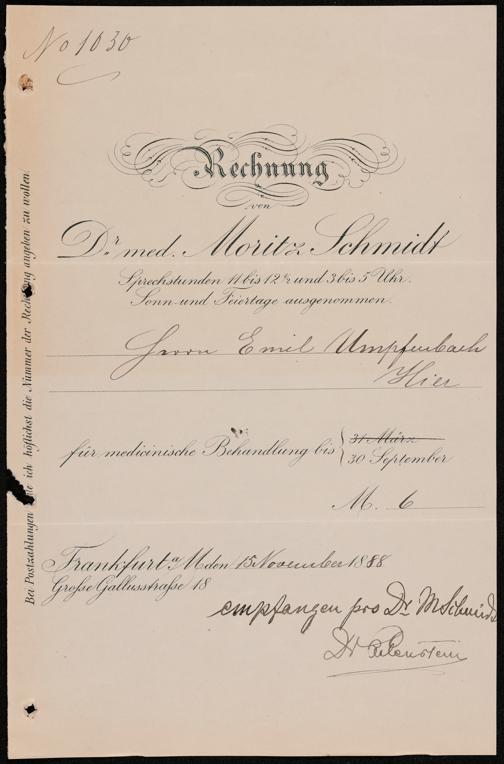 No 1030
Rechnung
von
Dr. med. Moritz Schmidt
Sprechstunden 11 bis 12½ und 3 bis 5 Uhr.
Sonn- und Feiertage ausgenommen.
Herrn Emil Umpfenbach
Hier
für medicinische Behandlung bis
31 März
30 September
M. 6
Frankfurt a/M. den 15 November 1888
Große Gallusstraße 18
empfangen pro Dr. M Schmidt
Dr
Bei Postzahlungen bitte ich höflichst die Nummer der Rechnung angeben zu wollen.